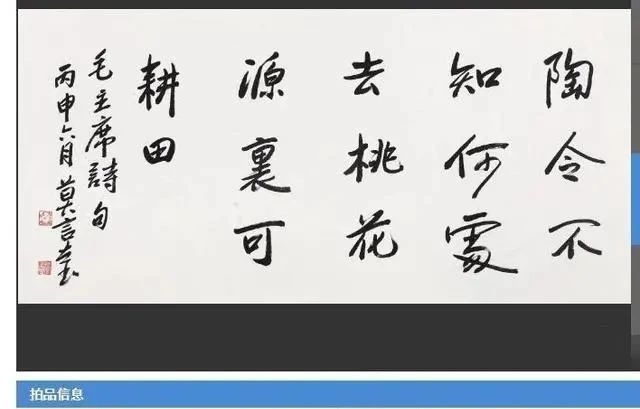 陶令不
知何處
去桃花
源裏可
耕田
毛主席詩句
丙申六月莫言書
拍品信息